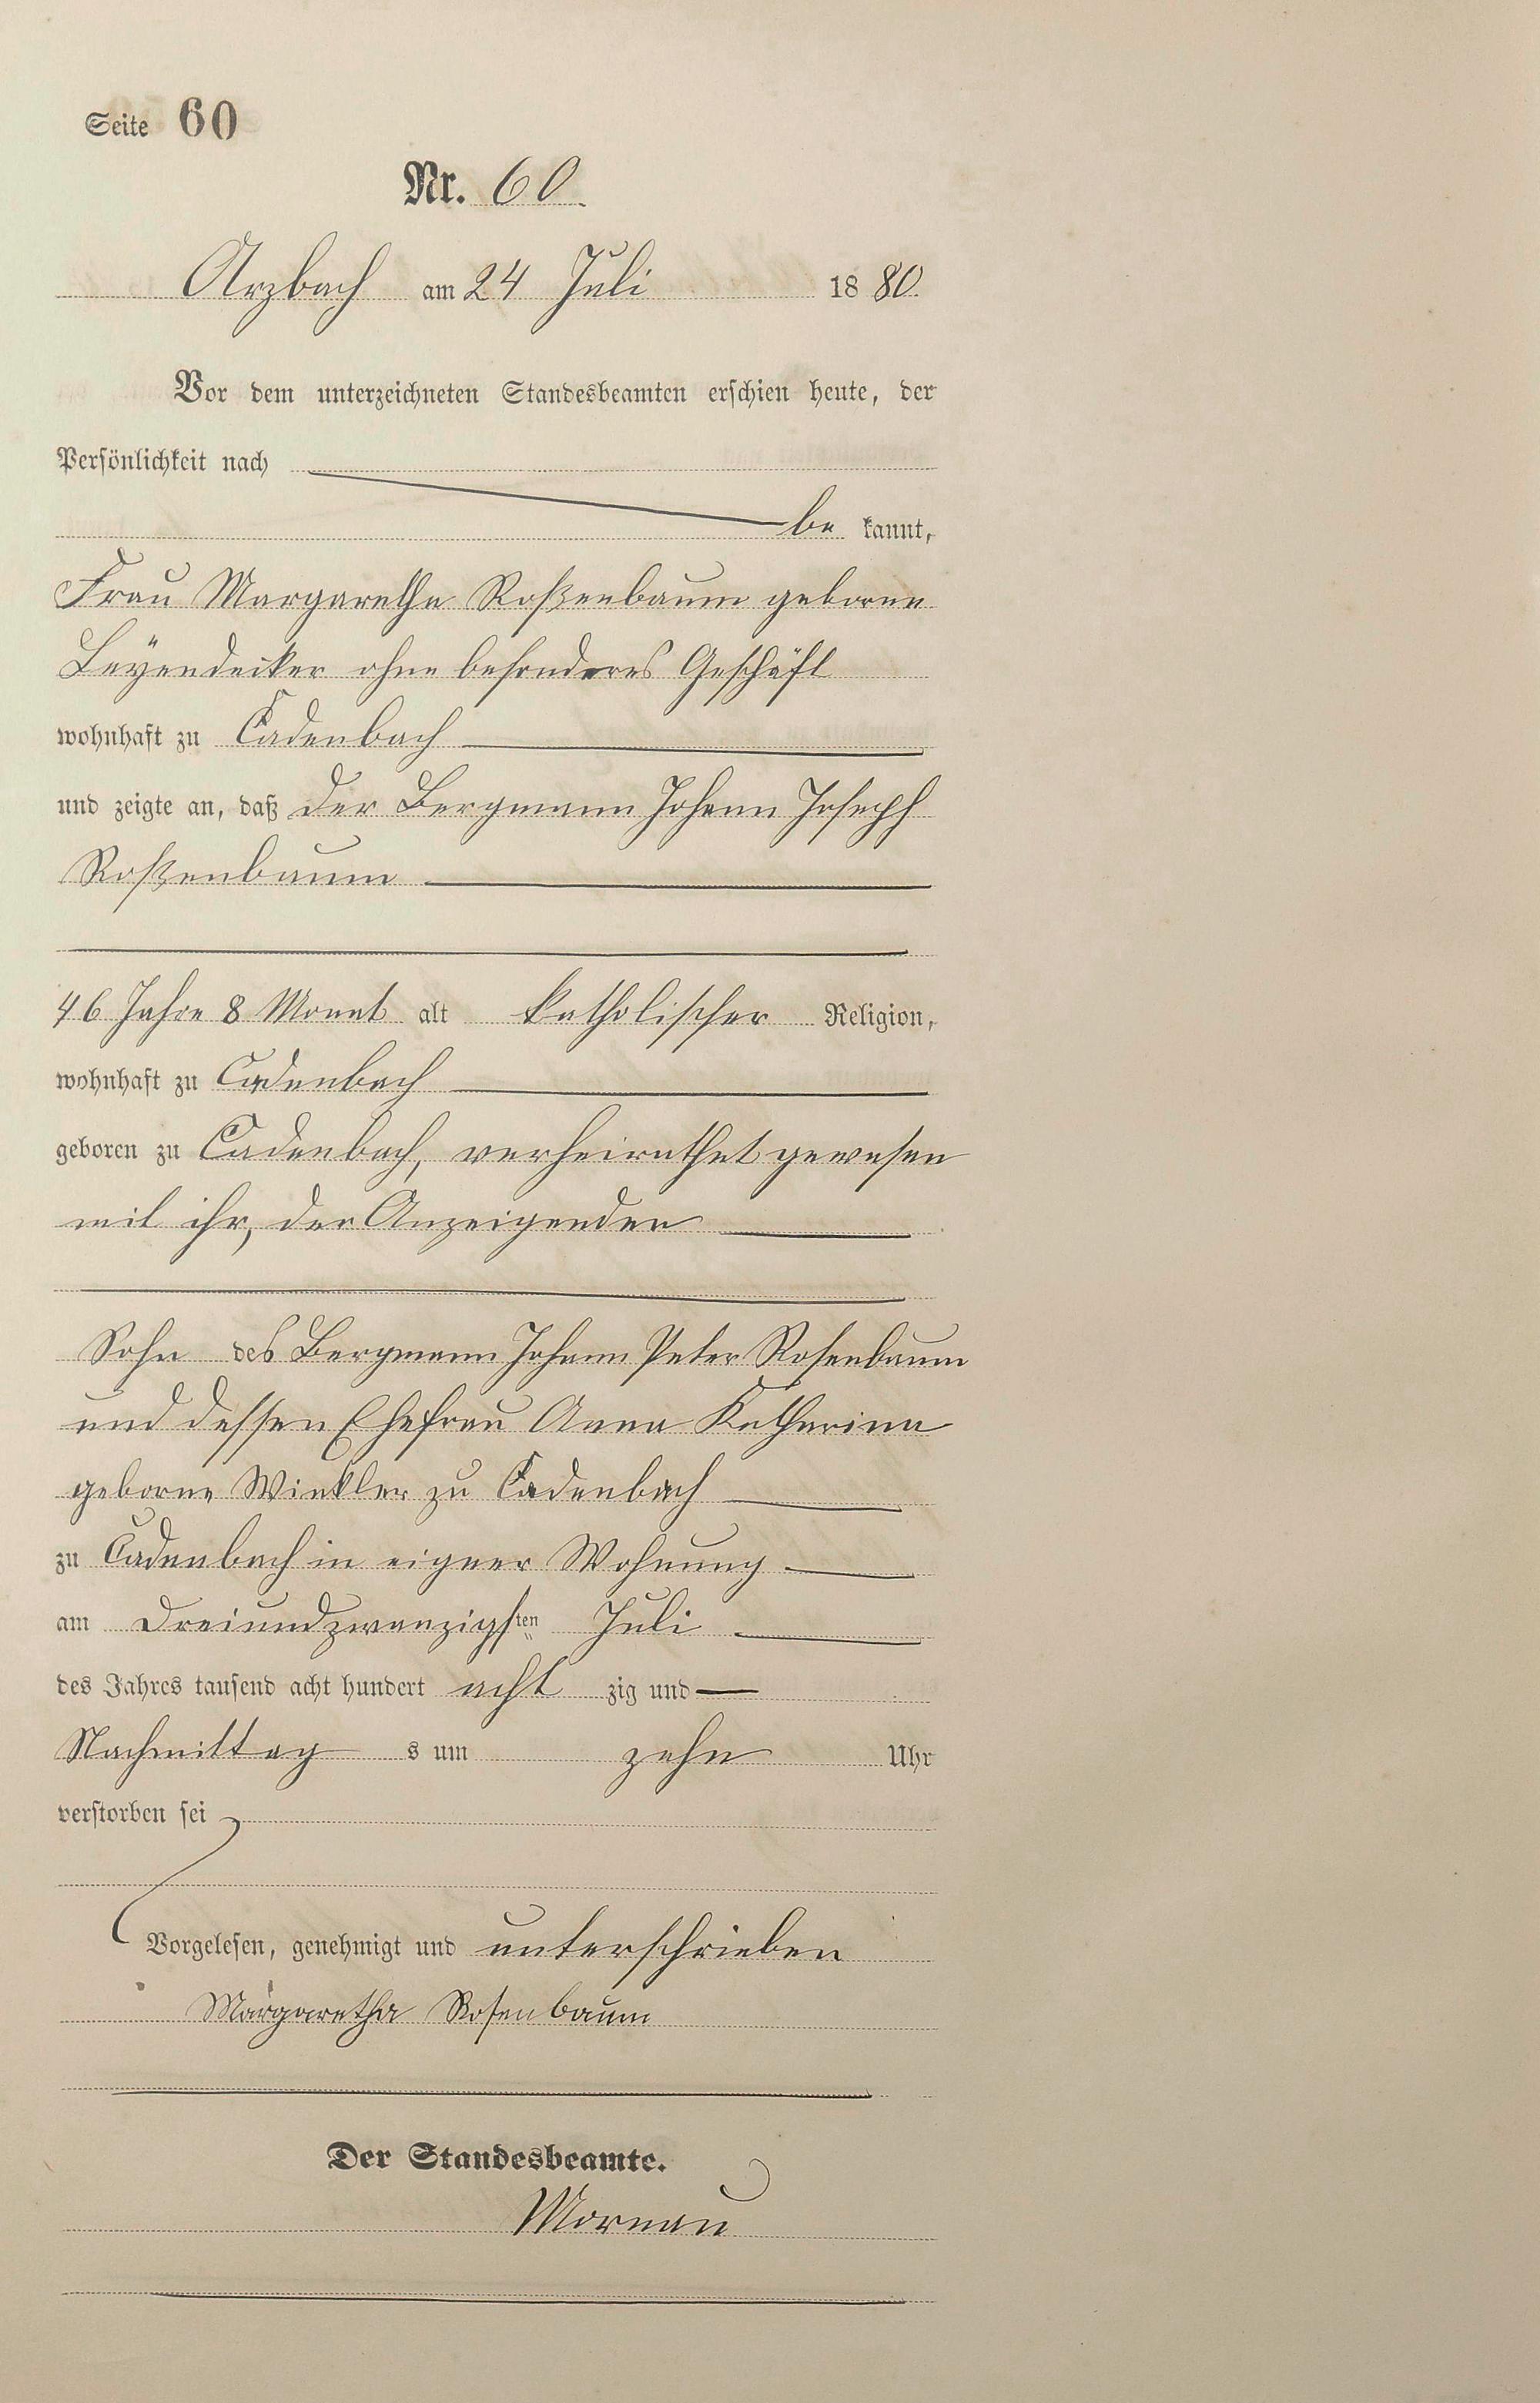 Seite 60
Nr. 60
Arzbach am 24 Juli 1880
Vor dem unterzeichneten Standesbeamten erschien heute, der
Persönlichkeit nach
be kannt,
Frau Margarethe Roßenbaum geborne
Leÿendecker ohne besonderes Geschäft
wohnhaft zu Cadenbach
und zeigte an, daß der Bergmann Johann Joseph
Roßenbaum
46 Jahre 8 Monat alt katholischer Religion,
wohnhaft zu Cadenbach
geboren zu Cadenbach, verheirathet gewesen
mit ihr, der Anzeigenden
Sohn des Bergmann Johann Peter Rosenbaum
und dessen Ehefrau Anna Katharina
geborne Winkler zu Cadenbach
zu Cadenbach in eigner Wohnung
am Dreiundzwanzigsten Juli
des Jahres tausend acht hundert acht zig und
Nachmittag s um zehn Uhr
verstorben sei
Vorgelesen, genehmigt und unterschrieben
Margaretha Rosenbaum
Der Standesbeamte.
Mornau